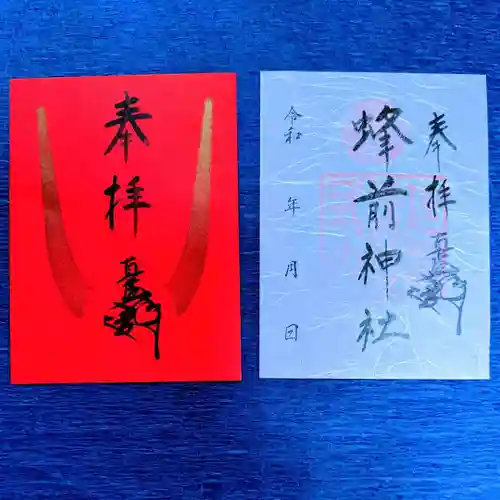 奉拝
奉拝
蜂前神社
令和 年 月 日